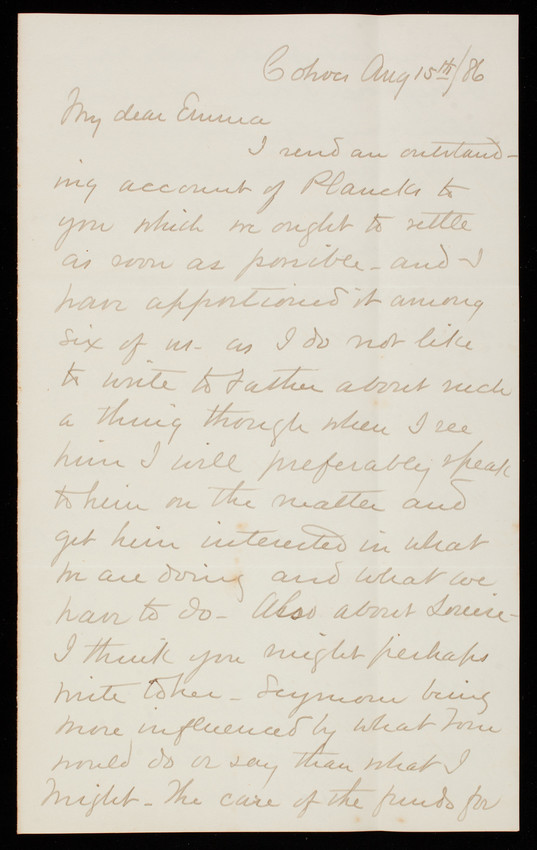 Cohoes Aug 15th/86
My dear Emma
I send an outstand-
ing account of Plancks to
you which we ought to settle
as soon as possible - and I
have apportioned it among
six of us - as I do not like
to write to Father about such
a thing though when I see
him I will preferably speak
to him on the matter and
get him interested in what
we are doing and what we
have to do - Also about Louise -
I think you might perhaps
write to her - Seymour being
more influenced by what Tom
would do or say than what I
might - The care of the funds for